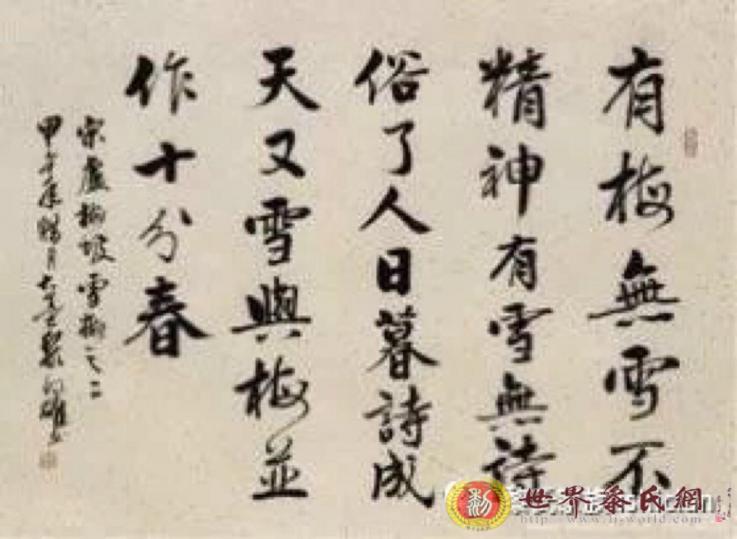 有梅無雪不
精神有雪無詩
俗了人日暮詩成
天又雪與梅並
作十分春
宋盧梅坡雪梅之二
甲午年臘月 黎
世界黎氏網
http://www.li-world.com